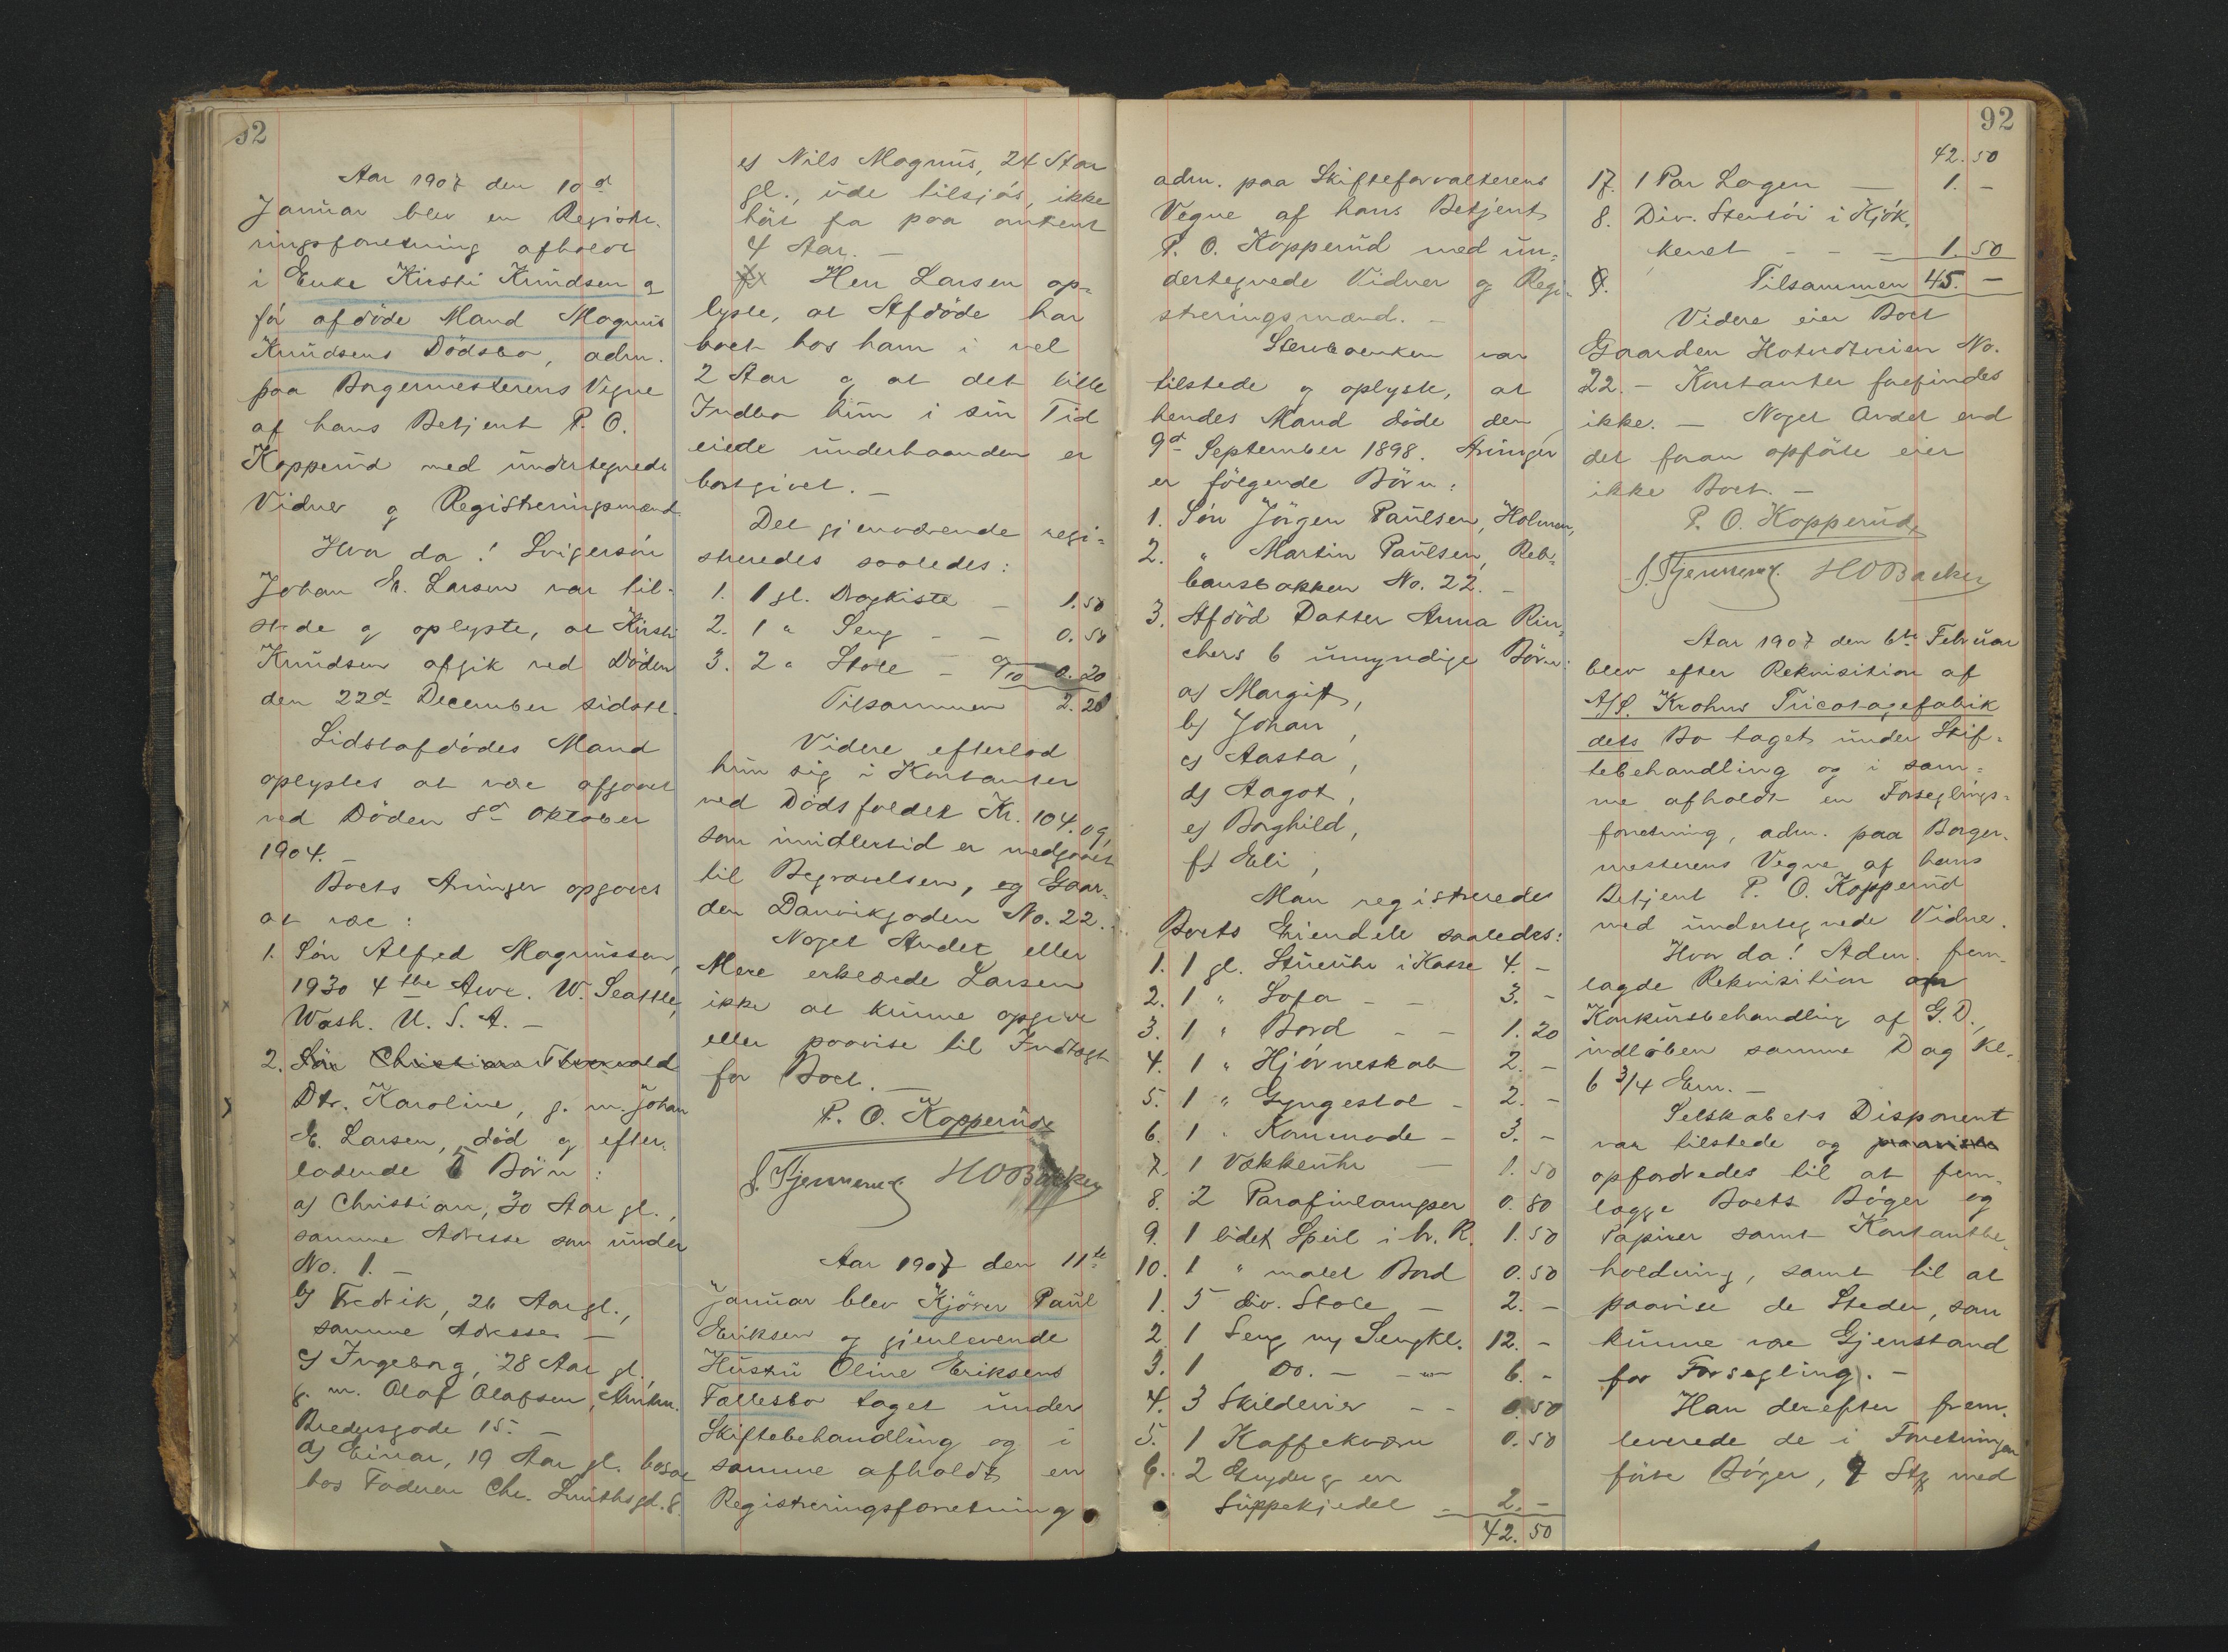 92
Aar 1907 den 10d
Januar blev en Registre-
ringsforretning afholdt
i Enke Kirsti Knudsen og
før afdöde Mand Magnus
Knudsens Dödsbo, adm.
paa Borgermesterens Vegne
af hans Betjent P. O.
Kopperud med undertegnede
Vidner og Registreringsmænd.
Hvor da! Svigersön
Johan E. Larsen var til-
stede og oplyste, at Kirsti
Knudsen afgik ved Döden
den 22d December sidstl.
Sidstafdödes Mand
oplystes at være afgaaet
ved Döden 8d Oktober
1904. –
Boets Arvinger opgaves
at være:
1. Sön Alfred Magnussen,
1930 4the Ave. W. Seattle,
Wash. U. S. A. –
2. Sön Christian Thorvald
Dtr. Karoline, g. m. Johan
E. Larsen, död og efter-
ladende 5 Börn:
a) Christian, 30 Aar gl.,
samme Adresse som under
No. 1. –
b) Fredrik, 26 Aar gl.,
samme Adresse –
c) Ingeborg, 28 Aar gl.,
g. m. Olaf Olafsen,
Bredersgade 15. –
d) Einar, 19 Aar gl. bosat
hos Faderen Chr. Smithsgd. 8.
e) Nils Magnus, 24 Aar
gl., ude tilsjös, ikke
hört fra paa omtrent
4 Aar. –
Herr Larsen op-
lyste, at Afdöde har
boet hos ham i vel
2 Aar og at det lille
Indbo hun i sin Tid
eiede underhaanden er
bortgivet. –
Det gjenværende regi-
streredes saaledes:
1. 1 gl. Dragkiste – 1.50
2. 1 " Seng – – 0.50
3. 2 " Stole – a/10 0.20
Tilsammen 2.20
Videre efterlod
hun sig i Kontanter
ved Dödsfaldet Kr. 104.09,
som imidlertid er medgaaet
til Begravelsen, og Gaar-
den Danvikgaden No. 22. –
Noget Andet eller
Mere erklærede Larsen
ikke at kunne opgive
eller paavise til Indtægt
for Boet. –
P. O. Kopperud
J. Tjernerud HOBacker
Aar 1907 den 11te
Januar blev Kjörer Paul
Eriksen og gjenlevende
Hustru Oline Eriksens
Fællesbo taget under
Skiftebehandling og i
samme afholdt en
Registreringsforretning
92
adm. paa Skifteforvalterens
Vegne af hans Betjent
P. O. Kopperud med un-
dertegnede Vidner og Regi-
streringsmænd. –
Stervboenken var
tilstede og oplyste, at
hendes Mand döde den
9d September 1898. Arvinger
er fölgende Börn:
1. Sön Jörgen Paulsen, Holmen,
2. " Martin Paulsen, Reb-
bansbakken No. 22. –
3. Afdöd Datter Anna
6 umyndige Börn:
a) Margit,
b) Johan,
c) Aasta,
d) Aagot,
e) Borghild,
f) Eli;
Man registreredes
Boets Eiendele saaledes:
1. 1 gl. Stueuhr i Kasse 4. –
2. 1 " Sofa – – 3. –
3. 1 " Bord – – 1.20
4. 1 " Hjörneskab 2. –
5. 1 " Gyngestol – 2. –
6. 1 " Kommode – 3. –
7. 1 Vækkeuhr – 1.50
8. 2 Parafinlamper 0.80
9. 1 lidet Speil i br. R. 1.50
10. 1 " malet Bord 0.50
1. 5 div. Stole – 2. –
2. 1 Seng m/ Sengkl. 12. –
3. 1 Do. – – 6. –
4. 3 Skilderier – – 0.50
5. 1 Kaffekværn 0.50
6. 2 Gryder og en
Suppekjedel – 2. –
42.50
42.50
17. 1 Par Lagen – 1. –
8. Div. Stentöi i Kjök-
kenet – – – 1.50
9. Tilsammen 45. –
Videre eier Boet
Gaarden Hotvedtveien No.
22. – Kontanter forefindes
ikke. – Noget Andet end
det foran opförte eier
ikke Boet. –
P. O. Kopperud
J. Tjernerud HOBacker
Aar 1907 den 6te Februar
blev efter Rekvisition af
A/S. Krohns Tricotagefabrik
dets Bo taget under Skif-
tebehandling og i sam-
me afholdt en Forseglings-
forretning, adm. paa Borger-
mesterens Vegne af hans
Betjent P. O. Kopperud
med undertegnede Vidne.
Hvor da! Adm. frem-
lagde Rekvisition om
Konkursbehandling af G.D.,
indlöben samme Dag Kl.
6 3/4 Em. –
Selskabets Disponent
var tilstede og paaviste
opfordredes til at frem-
lægge Boets Böger og
Papirer samt Kontantbe-
holdning, samt til at
paavise de Steder, som
kunne være Gjenstand
for Forsegling. –
Han derefter frem-
leverede de i Forretningen
förte Böger, 7 Stk med